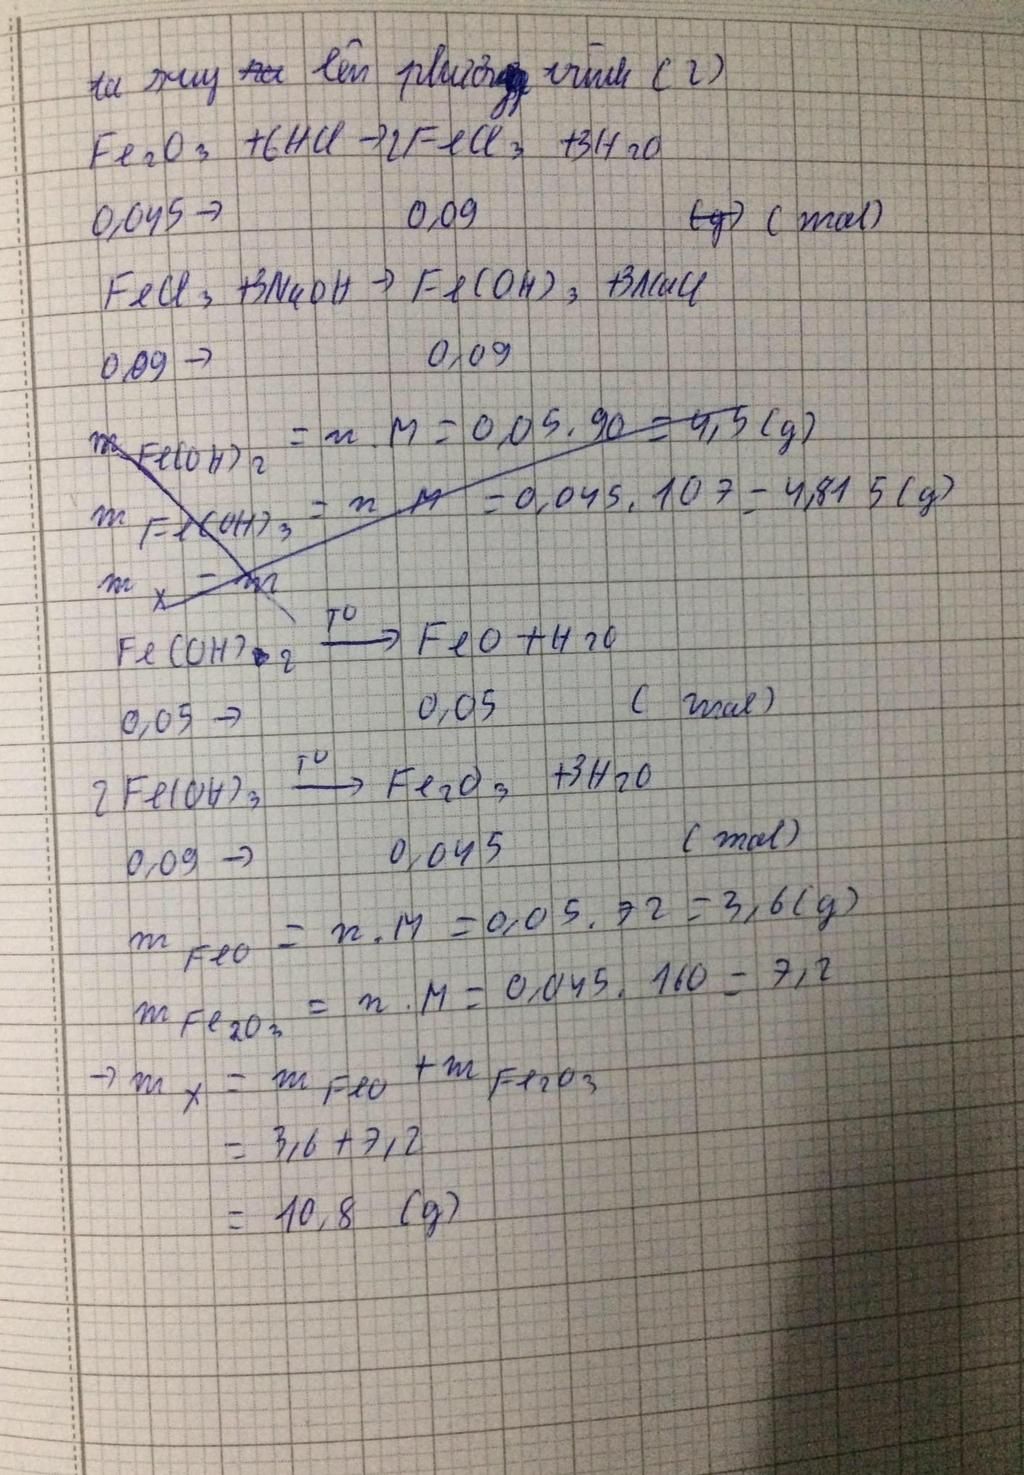 ta suy ra lên phương trình (2)
Fe2O3 +6HCl →2FeCl3 +3H2O
0,045→ 0,09 (g) (mol)
FeCl3 +3NaOH → Fe(OH)3 +3NaCl
0,09 → 0,09
m Fe(OH)2 = n.M = 0,05.90 = 4,5 (g)
m Fe(OH)3 = n.M = 0,045.107 = 4,815 (g)
m X = m
Fe(OH)2 TO → FeO + H2O
0,05 → 0,05 (mol)
2Fe(OH)3 TO → Fe2O3 +3H2O
0,09 → 0,045 (mol)
m FeO = n.M = 0,05.72 = 3,6(g)
m Fe2O3 = n.M = 0,045.160 = 7,2
→ m X = m FeO + m Fe2O3
= 3,6+7,2
= 10,8 (g)